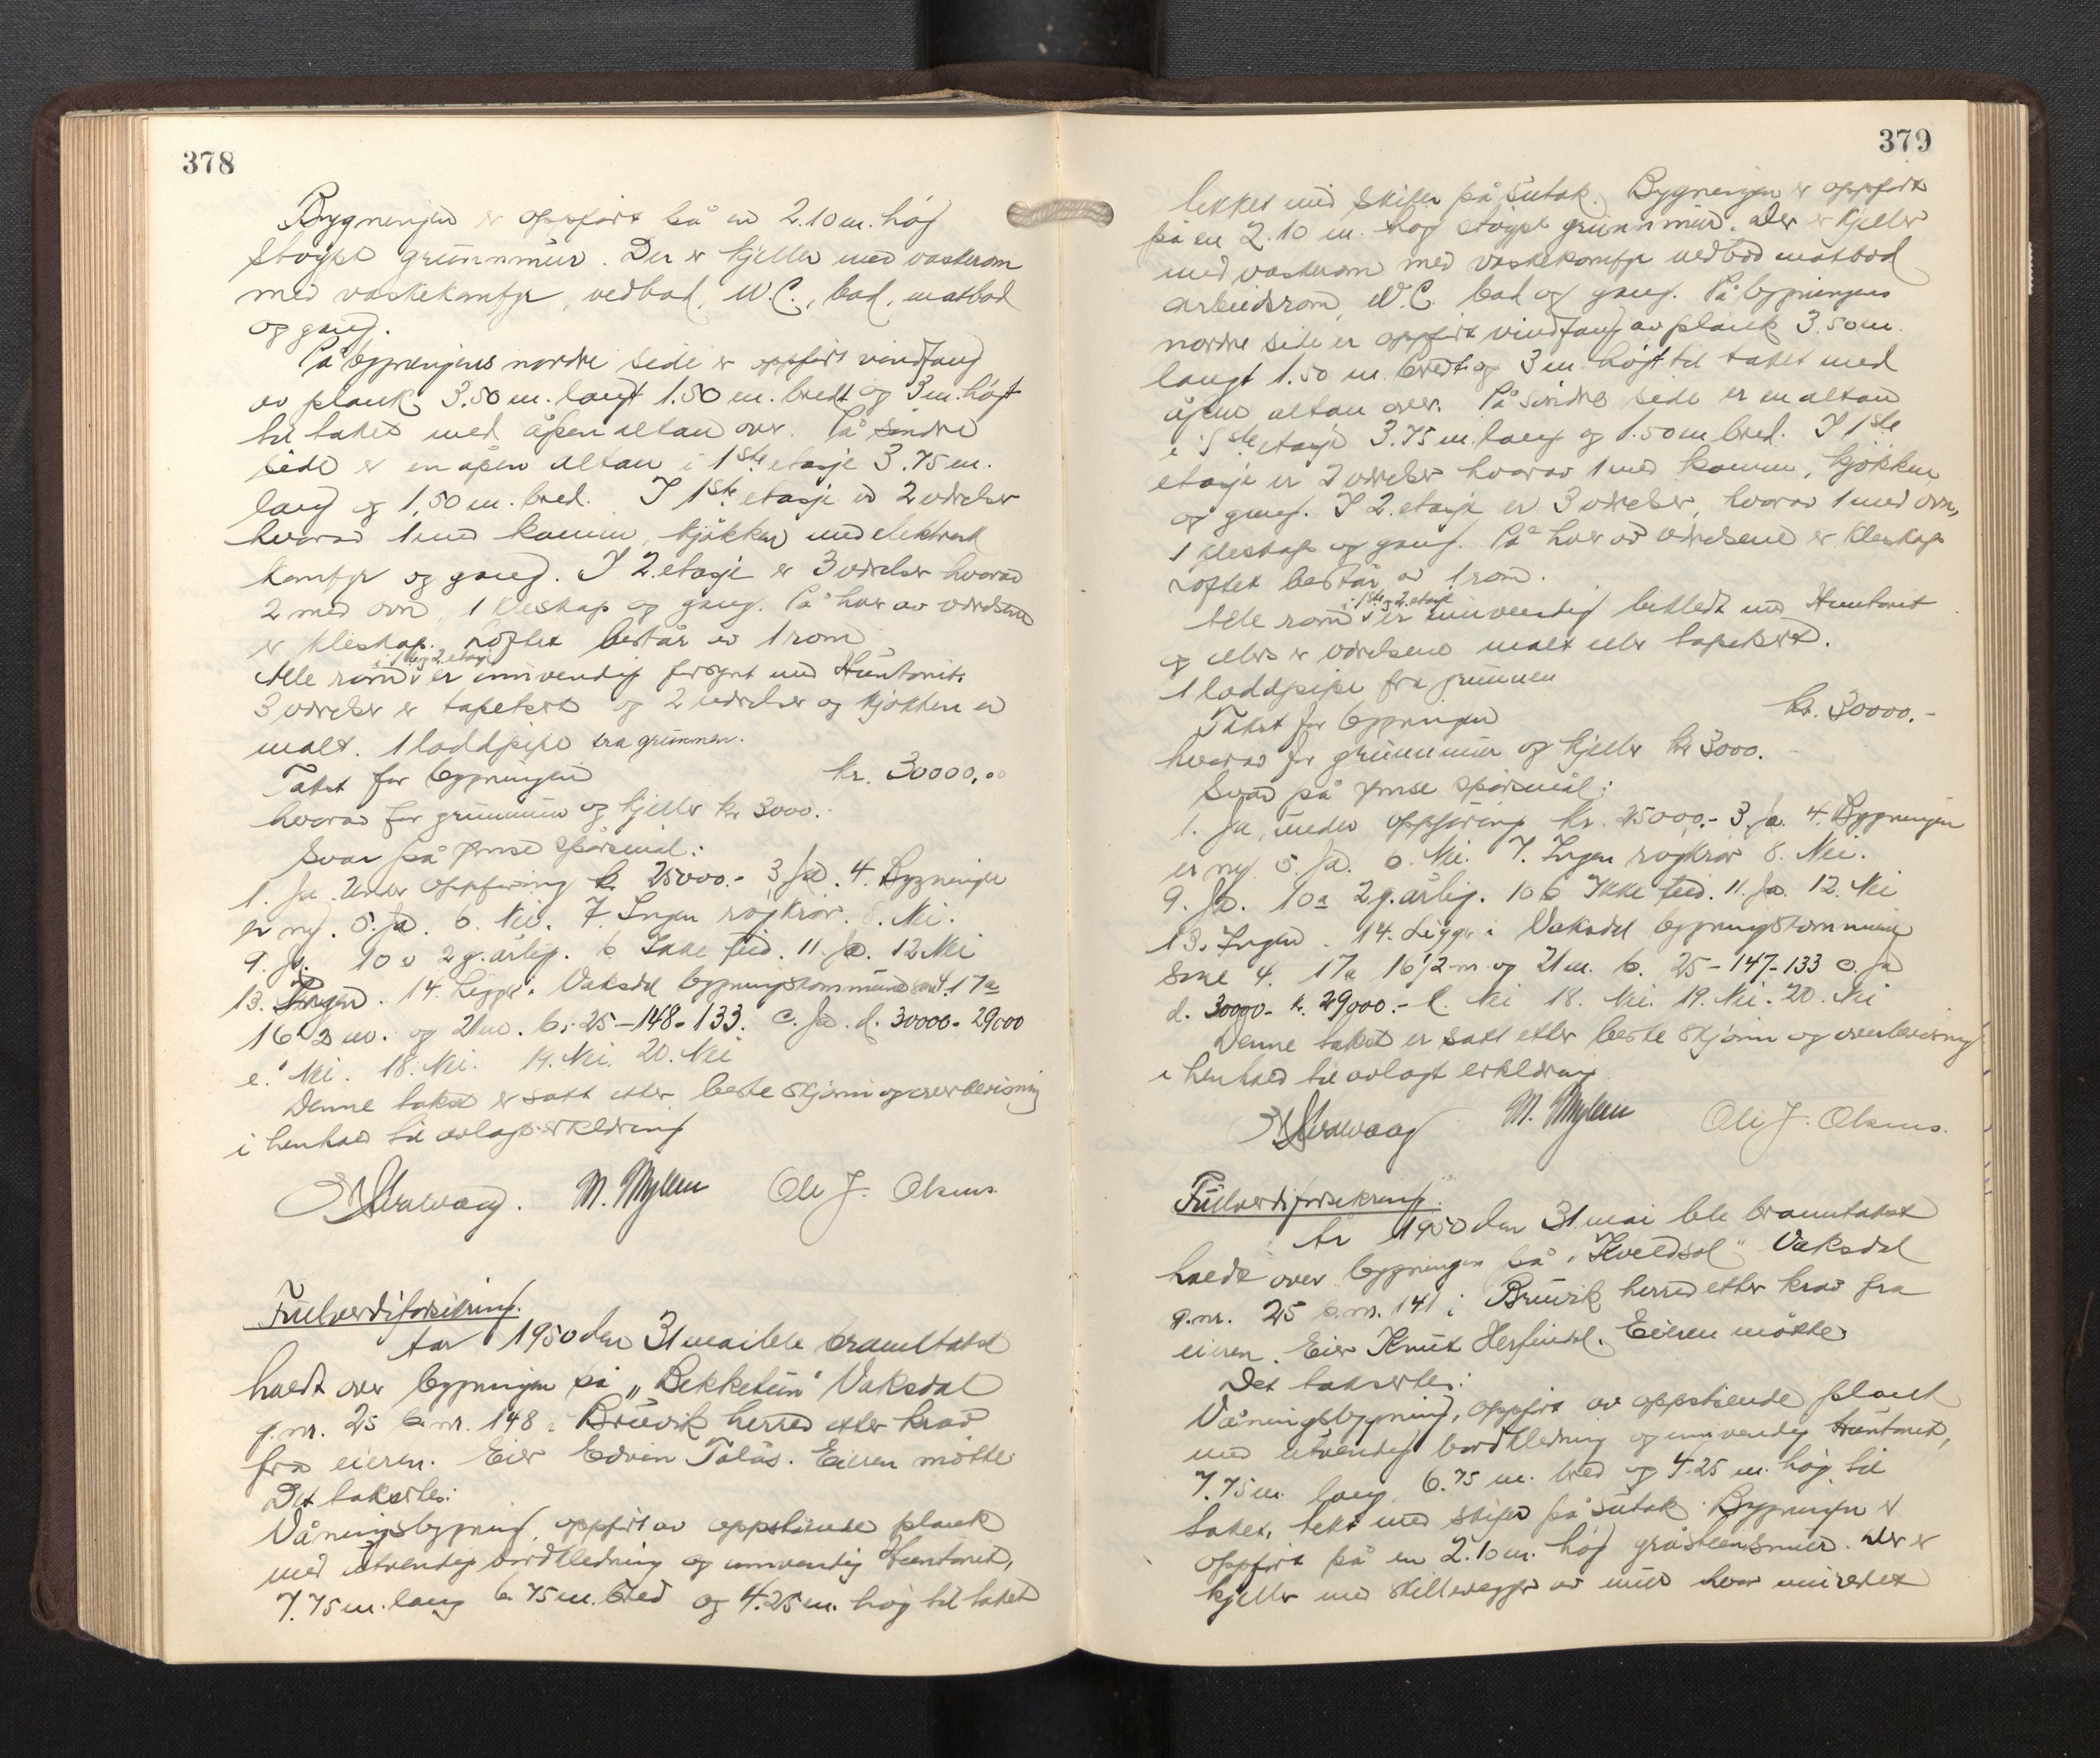 378
Bygningen er oppført på en 2.10 m. høg
støypt grunnmur. Der er kjeller med vaskerom
med vaskekomfyr, vedbod, W.C., bad, matbod
og gang.
På bygningens nordre side er oppført vindfang
av plank 3.50 m. langt 1.50 m. bredt og 3 m. høgt
til taket med åpen altan over. På søndre
side er en åpen altan i 1ste etasje 3.75 m.
lang og 1,50 m. bred. I 1ste etasje er 2 værelser
hvorav 1 med kamin, kjøkken med elektrisk
komfyr og gang. I 2. etasje er 3 værelser hvorav
2 med ovn, 1 kleskap og gang. På hver av værelsene
er kleskap. Loftet består av 1 rom
i 1ste og 2. etasje
Alle rom er innvendig forsynt med Huntonit.
3 værelser er tapetsert og 2 værelser og kjøkken er
malt. 1 loddpipe fra grunnen.
Takst for bygningen kr. 30000.00
hvorav for grunnmur og kjeller kr 3000.-
Svar på ymse spørsmål:
1. Ja. Under oppføring kr 25000.- 3. Ja. 4. Bygningen
er ny. 5. Ja. 6. Nei. 7. Ingen røykrør. 8. Nei.
9. Ja. 10 a 2 g. årlig. b. Ikke feid. 11. Ja. 12. Nei
13. Ingen. 14. Ligger i Vaksdal bygningskommune sone 4. 17 a
16 1/2 m. og 21 m. b. 25-148-133. c. Ja. d. 30000.- 29000
e. Nei. 18. Nei. 19. Nei. 20. Nei
Denne takst er satt etter beste skjønn og overbevisning
i henhold til avlagt erklæring
M. Myhren Ole J. Olsnes.
Fullverdiforsikring.
År 1950 den 31 mai ble branntakst
holdt over bygningen på „Bekketun" Vaksdal
g.nr. 25 b.nr. 148 i Bruvik herred etter krav
fra eieren. Eier Edvin Tolås. Eieren møtte.
Det taksertes:
Våningsbygning, oppført av oppstående plank
med utvendig bordkledning og innvendig Huntonit,
7.75 m. lang 6.75 m. bred og 4.25 m. høg til taket
379
tekket med skifer på sutak. Bygningen er oppført
på en 2.10 m. høg støypt grunnmur. Der er kjeller
med vaskerom med vaskekomfyr vedbod matbod
arbeidsrom, W.C. bad og gang. På bygningens
nordre side er oppført vindfang av plank 3.50 m.
langt 1.50 m. bredt og 3 m. høgt til taket med
åpen altan over. På søndre side er en altan
i 1ste etasje 3.75 m. lang og 1.50 m bred. I 1ste
etasje er 2 værelser hvorav 1 med kamin, kjøkken
og gang. I 2. etasje er 3 værelser, hvorav 1 med ovn,
1 kleskap og gang. På hver av værelsene er kleskap
Loftet består av 1 rom.
i 1ste og 2. etasje
Alle rom er innvendig bekledt med Huntonit
og ellers er værelsene malt eller tapetsert.
1 loddpipe fra grunnen
Takst for bygningen kr. 30000.-
hvorav for grunnmur og kjeller kr 3000.-
Svar på ymse spørsmål:
1. Ja, under oppføring kr. 25000.- 3. Ja. 4. Bygningen
er ny. 5. Ja. 6. Nei. 7. Ingen røykrør 8. Nei.
9. Ja. 10 a 2 g. årlig. 10 b Ikke feid. 11. Ja. 12. Nei
13. Ingen. 14. Ligger i Vaksdal bygningskommune
sone 4. 17 a 16 1/2 m og 21 m. b. 25-147-133 c. Ja
d. 30000.- kr. 29000.- e. Nei 18. Nei. 19. Nei. 20. Nei
Denne takst er satt etter beste skjønn og overbevisning
i henhold til avlagt erklæring
M. Myhren Ole J. Olsnes.
Fullverdiforsikring.
År 1950 den 31 mai ble branntakst
holdt over bygningen på „Kveldsol" Vaksdal
g.nr. 25 b.nr. 141 i Bruvik herred etter krav fra
eieren. Eier Knut Herfindal. Eieren møtte.
Det taksertes:
Våningsbygning, oppført av oppstående plank
med utvendig bordkledning og innvendig Huntonit,
7.75 m. lang 6.75 m. bred og 4.25 m. høg til
taket, tekt med skifer på sutak. Bygningen er
oppført på en 2.10 m. høg gråsteinsmur. Der er
kjeller med skillevegger av mur hvor innredet